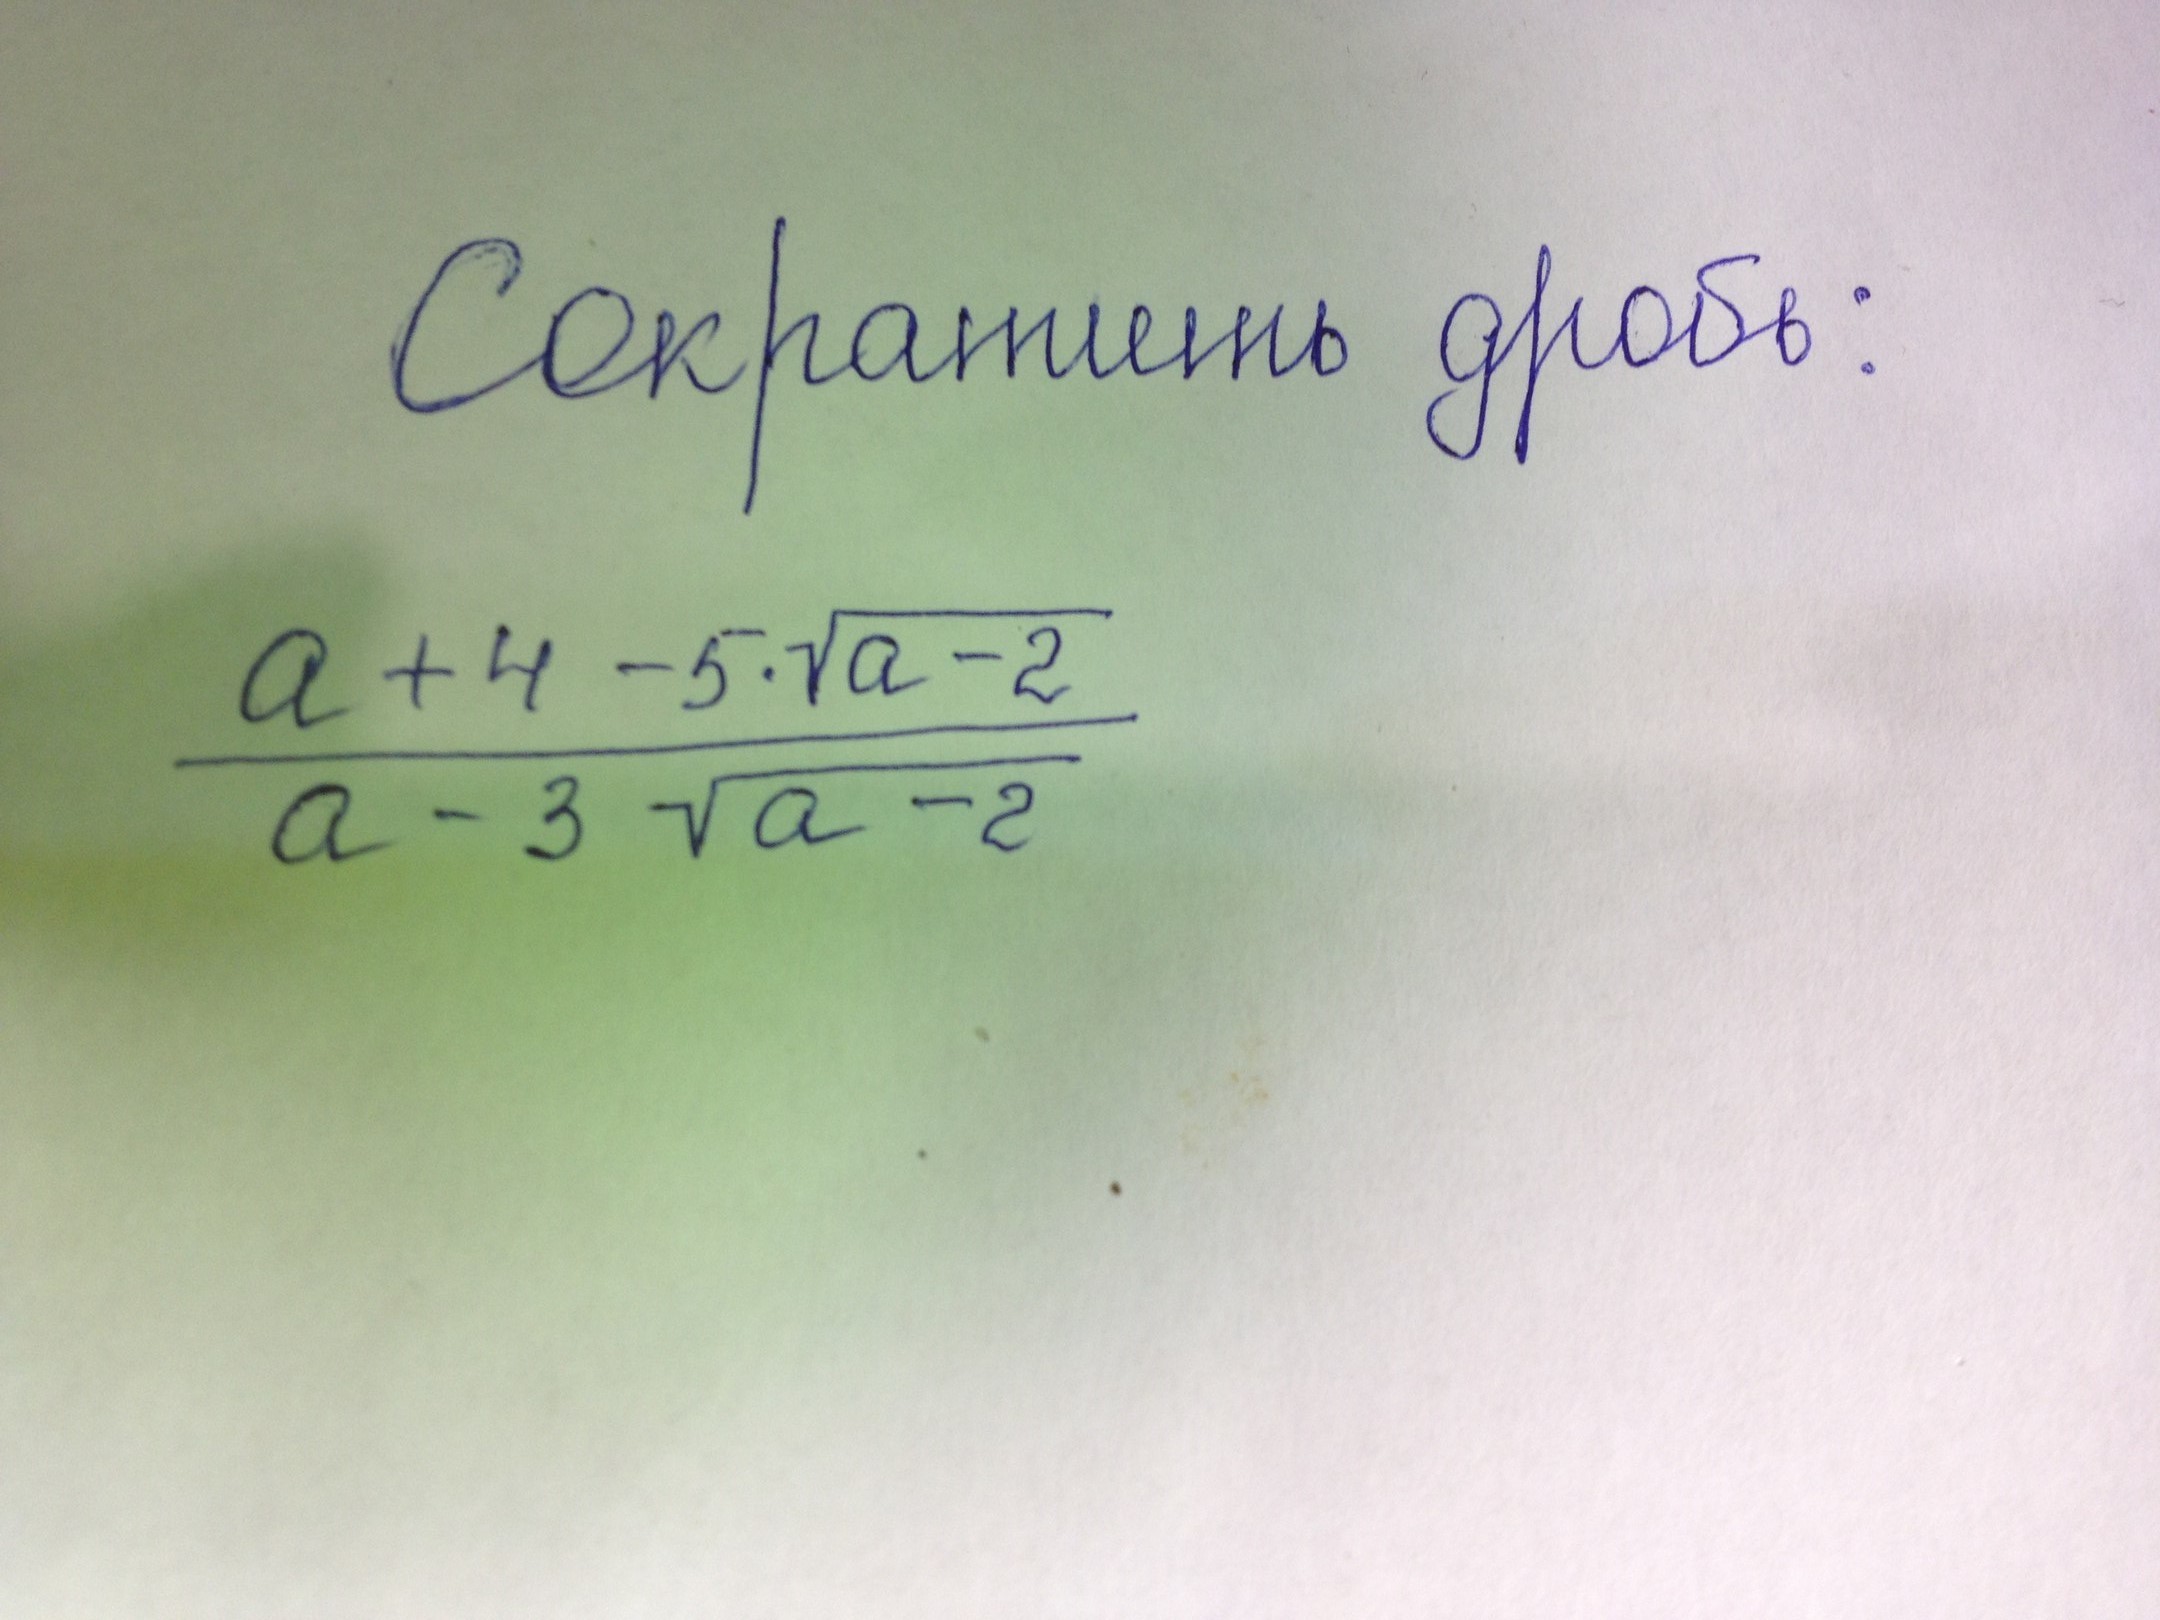 Сократить дробь:
a + 4 - 5·√a - 2
a - 3 √a - 2